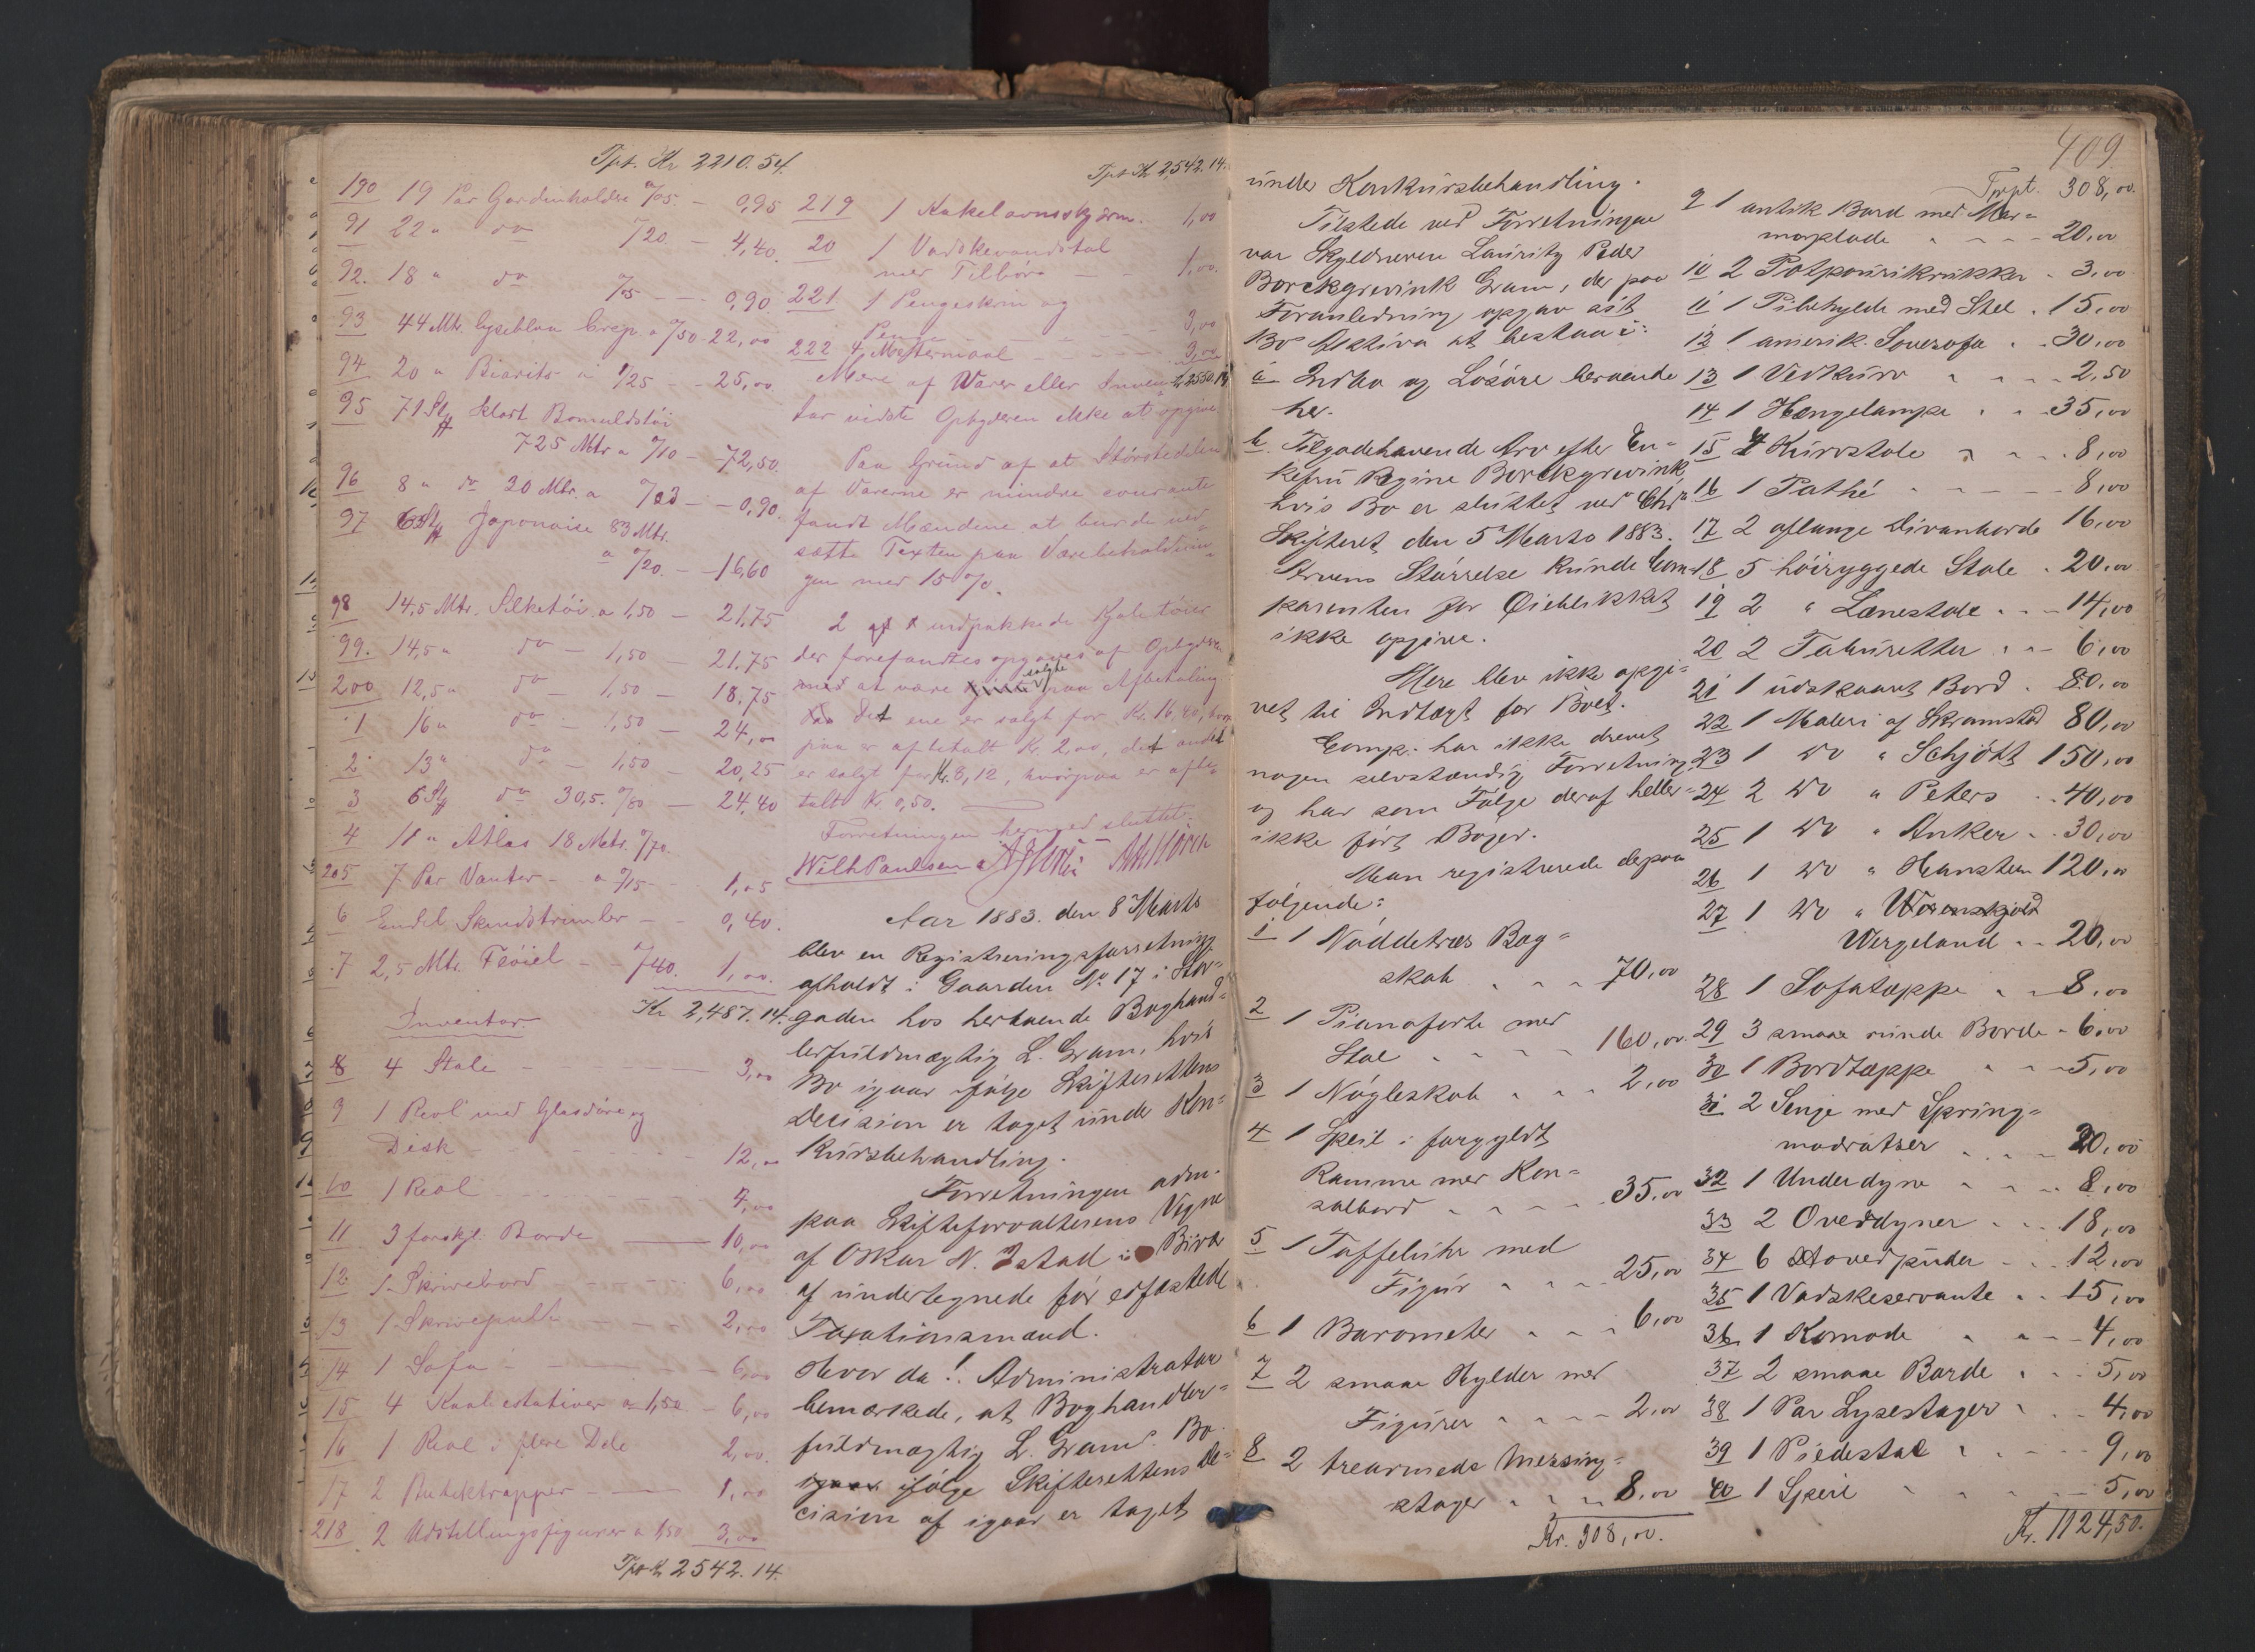 Tpt. Kr 2210.54.
190 19 Par Gardinholdere a /05. - 0,95
91 22 " do /20 - 4,40.
92. 18 " do /5 - - 0,90
93 44 Mtr. lyseblaa Crep. a /50 - 22,00
94 20 " Biarits a 1/25 - - 25,00
95 71 St sort Bomuldstøi
725 Mtr a /10 - - 72,50.
96 8 " do 30 Mtr. a /03 - - 0,90.
97 63 St Japonaise 83 Mtr.
a /20. - - 16,60
98 14,5 Mtr. Silketøi a 1,50 - 21,75
99. 14,5 " do - 1,50 - 21,75
200 12,5 " do - 1,50 - 18,75
1 16 " do - 1,50 - 24,00
2 13 " do - 1,50 - 20,25
3 6 St do 30,5. /80 - 24,40
4 11 " Atlas 18 Metr. /70.
205 7 Par Vanter - a /15 - 1,05
6 Endel Skindstrimler - - 0,40.
7 2,5 Mtr. Fløiel - - /40. 1,00.
Kr 2,487.14.
Inventar.
8 4 Stole - - - 3,00
9 1 Reol med Glasdøre og
Disk - - - 12,00
10 1 Reol - - - 4,00
11 3 forskjl. Borde - 10,00
12. 1 Skrivebord - - - 6,00
13 1 Skrivepult - - - 2,00
14 1 Sofa - - - 6,00
15 4 Kaabestativer a 1,50 - 6,00
16 1 Reol i flere Dele 2,00.
17 2 Butiktrapper - - 1,00
218 2 Udstillingsfigurer a 1,50 3,00
Tpt Kr 2542.14.
Tpt Kr 2,542.14.
219 1 Kakelovnsskjærm. 1,00
20 1 Vadskevandstol
med Tilbør - - 1,00.
221. 1 Pengeskrin og
Penge - - - 3,00
222 4 Mastermaal - - - 3,00
Kr 2550.14
Mere af Varer eller Inven-
tar vidste Opbyderen ikke at opgive.
Paa Grund af at Størstedelen
af Varerne er mindre courante
fandt Mændene at burde ned-
sætte Taxten paa Varebeholdnin-
gen med 15 %.
2 indpakkede Kjoletøier
der forefandtes opgaves af Opbyderen
at være solgte paa Afbetaling
Det ene er solgt for Kr. 16,40, hvor
paa er afbetalt Kr. 2,00, det andet
er solgt for Kr. 8,12, hvorpaa er afbe-
talt Kr 0,50.
Forretningen hermed sluttet.
Wilh Paulsen
Aar 1883. den 8 Marts
blev en Registreringsforretning
afholdt i Gaarden No 17 i Stor-
gaden hos herboende Boghand-
lerfuldmægtig L. Gram, hvis
Bo igaar ifølge Skifterettens
Decision er taget under Kon-
kursbehandling.
Forretningen adm.
paa Skifteforvalterens Vegne
af Oskar N. Istad i Bivær
af undertegnede før edfæstede
Taxationsmænd.
Hvor da! Administrator
bemærkede, at Boghandler-
fuldmægtig L. Grams Bo
ifølge Skifterettens De-
cision af igaar er taget
409.
under Konkursbehandling.
Tilstede ved Forretningen
var Skyldneren Lauritz Peder
Borckgrevink Gram, der paa
Foranledning opgav sit
Bo's Aktiva at bestaa i:
a Indbo og Løsøre beroende
her.
b. Tilgodehavende Arv efter En-
kefru Regine Borckgrevink,
hvis Bo er sluttet ved Chra
Skifteret den 5 Marts 1883.
Arvens Størrelse kunde Com-
parenten for Øieblikket
ikke opgive.
Mere blev ikke opgi-
vet til Indtægt for Boet.
Comp. har ikke drevet
nogen selvstændig Forretning
og har som Følge deraf heller
ikke ført Bøger.
Man registrerede derpaa
følgende:
1 1 Nøddetræs Bog-
skab - - - 70,00
2 1 Pianoforte med
Stol - - - 160,00.
3 1 Nøgleskab - - - 2,00
4 1 Speil i forgyldt
Ramme med Kon-
solbord - - - 35,00
5 1 Taffeluhr med
Figur - - - 25,00
6 1 Barometer - - - 6,00
7 2 smaae Hylder med
Figurer - - - 2,00
8 2 trearmede Messing-
stager - - - 8,00
Kr. 308,00.
Trpt. 308,00.
9 1 antik Bord med Mar-
morplade - - - 20,00
10 2 Potpourikrukker - 3,00
11 1 Pibehylde med Stel . 15,00
12 1 amerik. Sovesofa . . 30,00
13 1 Vedkurv - - - 2,50
14 1 Hængelampe - - 35,00
15 4 Kurvstole - - - 8,00
16 1 Pathé - - - 8,00
17 2 aflange Divanborde 16,00
18 5 høiryggede Stole . 20,00
19 2 " Lænestole . . - 14,00
20 2 Tabouretter . . - 6,00
21 1 udskaaret Bord . 80,00
22 1 Maleri af Skramstad 80,00
23 1 do " Schjøtt 150,00
24 2 do " Peters . . 40,00
25 1 do " Anker . . 30,00
26 1 do " Hansteen 120,00
27 1 do " Werenskjold
Wergeland . . 20,00
28 1 Sofatæppe . . 8,00
29 3 smaae runde Borde - 6,00
30 1 Bordtæppe - - - 5,00
31 2 Senge med Spring-
madratser - - - 20,00
32 1 Underdyne - - - 8,00
33 2 Overdyner - - - 18,00
34 6 Hovedpuder - - 12,00
35 1 Vadskeservante . . 15,00
36. 1 Komode - - - 4,00
37 2 smaae Borde . . - 5,00
38 1 Par Lysestager . . - 4,00
39 1 Piedestal - - - 9,00
40 1 Speil - - - 5,00
Kr. 1124,50.